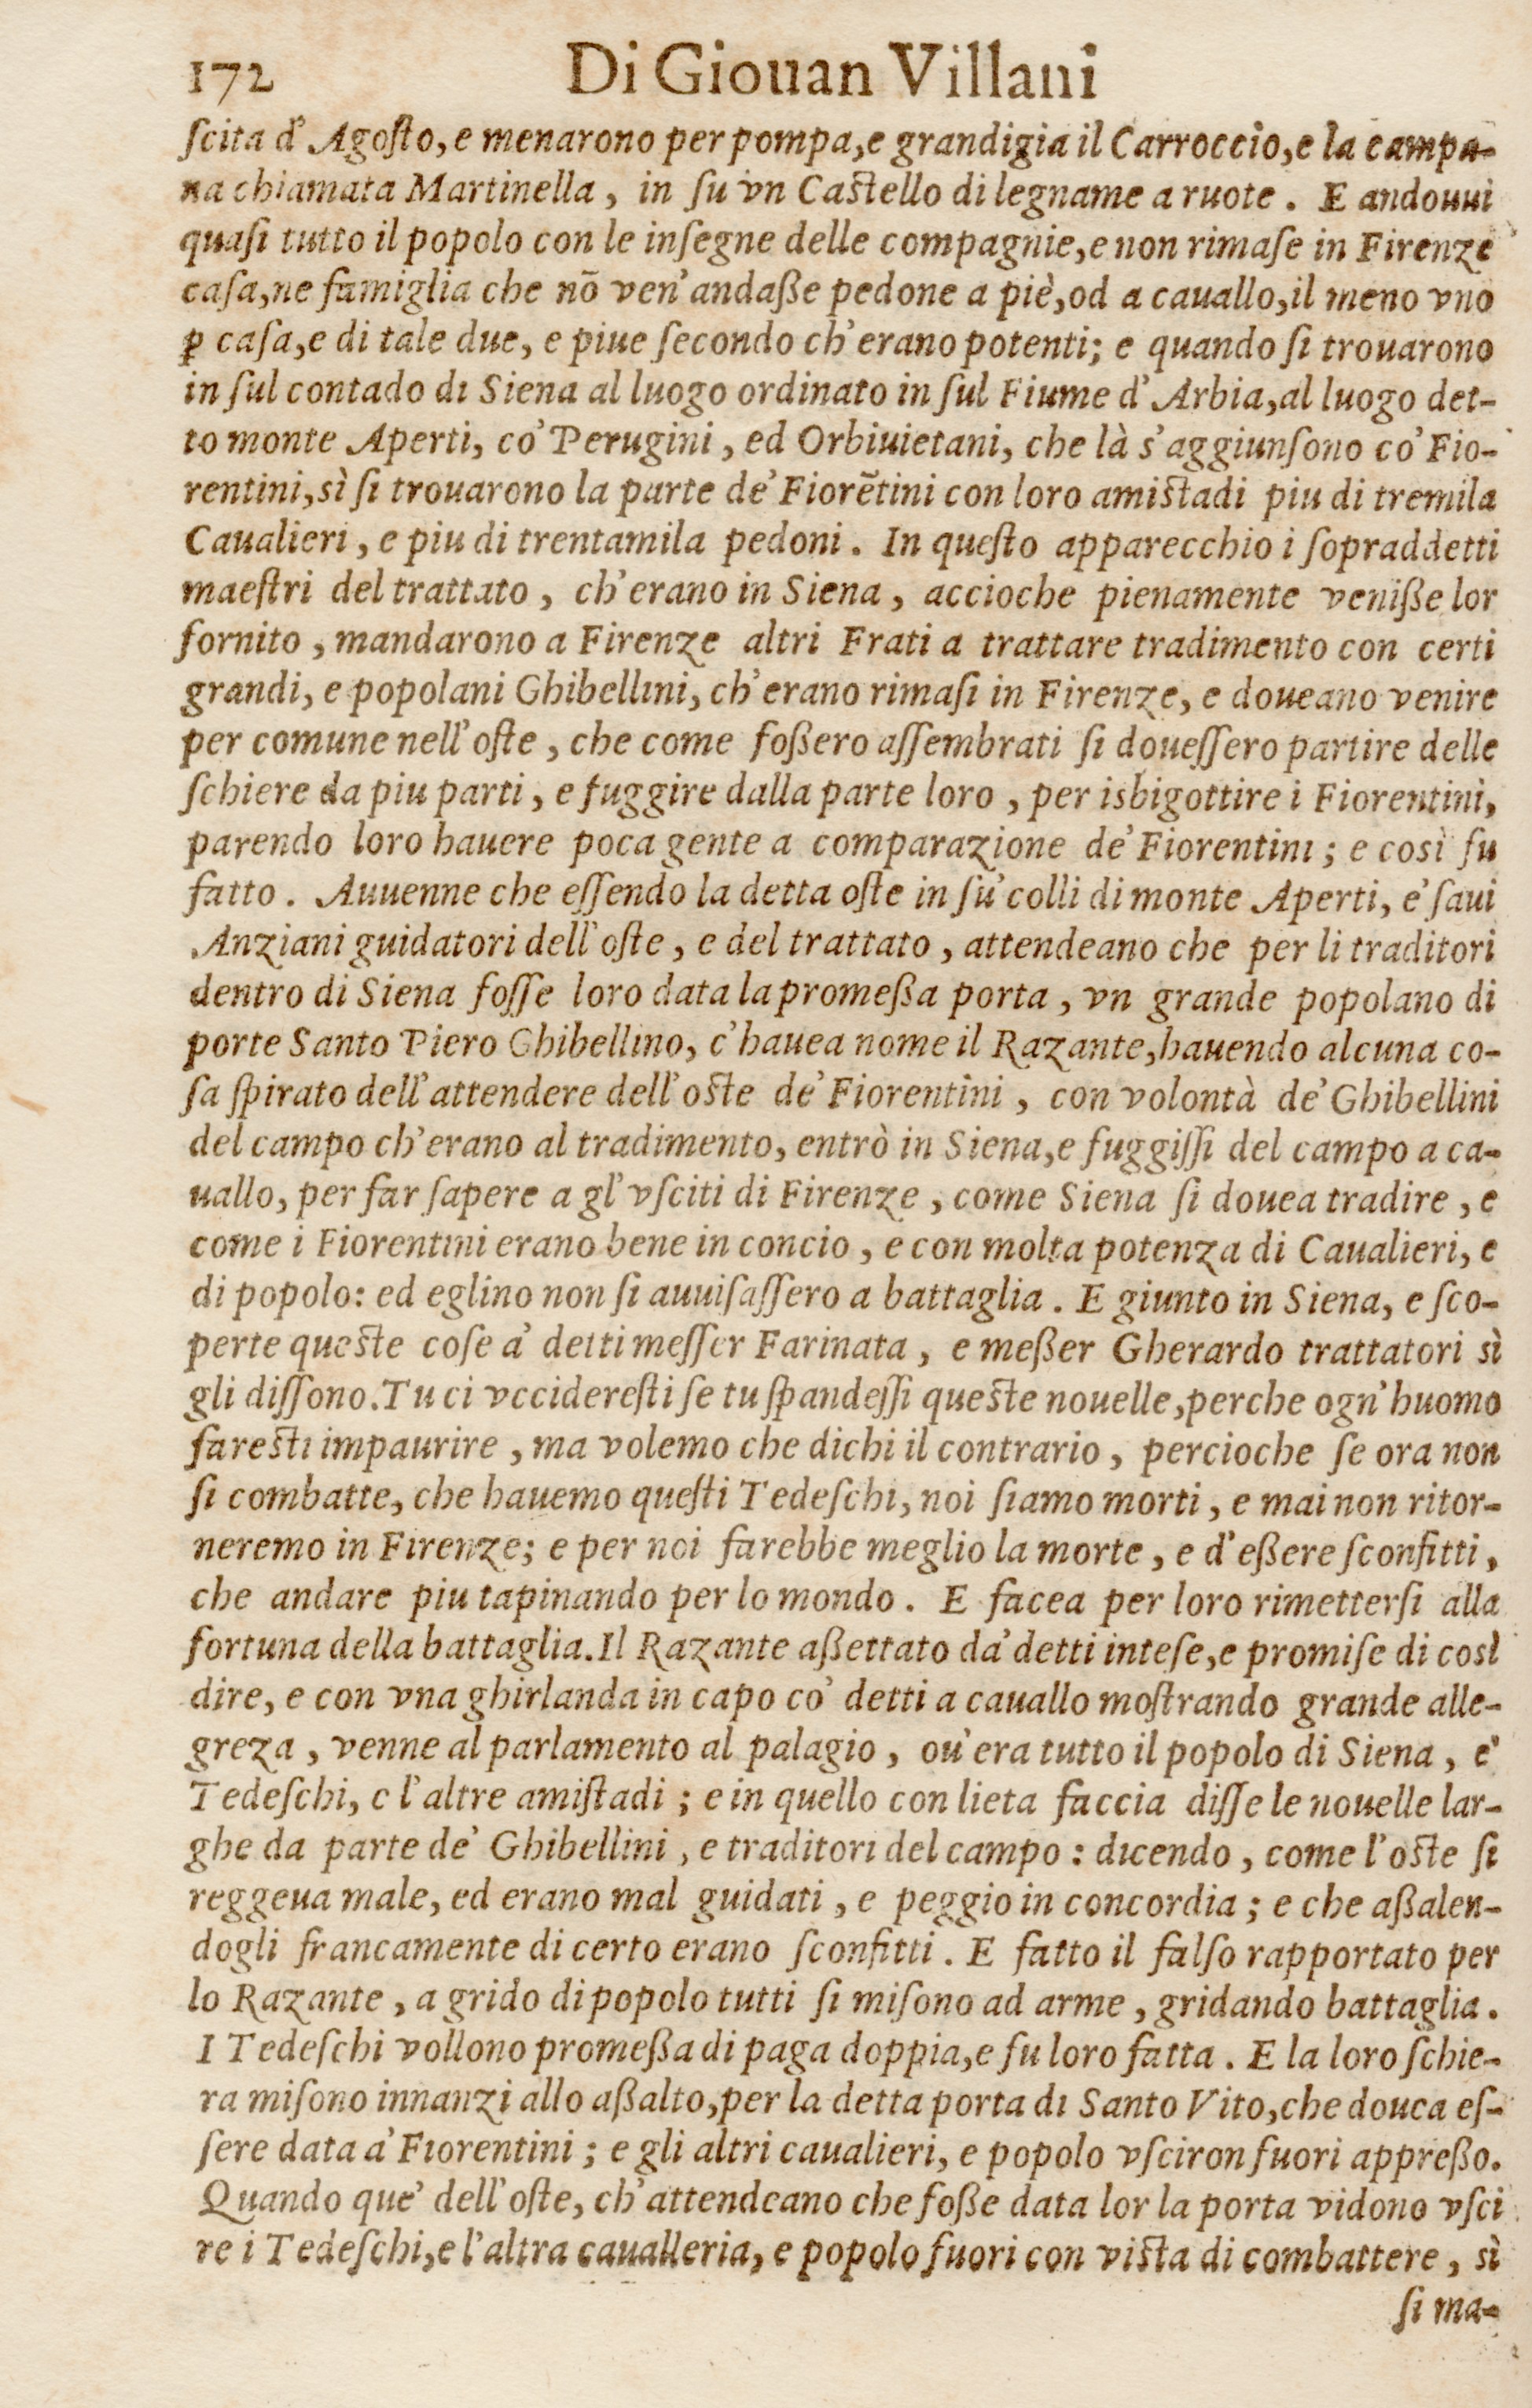 172 Di Giouan Villani
ſcita d'Agoſto, e menarono per pompa, e grandigia il Carroccio, e la campa-
na chiamata Martinella, in ſu vn Caſtello di legname a ruote. E andouui
quaſi tutto il popolo con le inſegne delle compagnie, e non rimaſe in Firenze
caſa, ne famiglia che nō ven'andaße pedone a piè, od a cauallo, il meno vno
ꝑ caſa, e di tale due, e piue ſecondo ch'erano potenti; e quando ſi trouarono
in ſul contado di Siena al luogo ordinato in ſul Fiume d'Arbia, al luogo det-
to monte Aperti, co' Perugini, ed Orbiuietani, che là s'aggiunſono co' Fio-
rentini, sì ſi trouarono la parte de' Fiorētini con loro amiſtadi piu di tremila
Caualieri, e piu di trentamila pedoni. In queſto apparecchio i ſopraddetti
maeſtri del trattato, ch'erano in Siena, accioche pienamente veniße lor
fornito, mandarono a Firenze altri Frati a trattare tradimento con certi
grandi, e popolani Ghibellini, ch'erano rimaſi in Firenze, e doueano venire
per comune nell'oſte, che come foßero aſſembrati ſi doueſſero partire delle
ſchiere da piu parti, e fuggire dalla parte loro, per isbigottire i Fiorentini,
parendo loro hauere poca gente a comparazione de' Fiorentini; e così fu
fatto. Auuenne che eſſendo la detta oſte in ſu' colli di monte Aperti, e' ſaui
Anziani guidatori dell'oſte, e del trattato, attendeano che per li traditori
dentro di Siena foſſe loro data la promeßa porta, vn grande popolano di
porte Santo Piero Ghibellino, c'hauea nome il Razante, hauendo alcuna co-
ſa ſpirato dell'attendere dell'oſte de' Fiorentini, con volontà de' Ghibellini
del campo ch'erano al tradimento, entrò in Siena, e fuggiſſi del campo a ca-
uallo, per far ſapere a gl'vſciti di Firenze, come Siena ſi douea tradire, e
come i Fiorentini erano bene in concio, e con molta potenza di Caualieri, e
di popolo: ed eglino non ſi auuiſaſſero a battaglia. E giunto in Siena, e ſco-
perte queſte coſe a' detti meſſer Farinata, e meßer Gherardo trattatori sì
gli diſſono. Tu ci vccidereſti ſe tu ſpandeſſi queſte nouelle, perche ogn'huomo
fareſti impaurire, ma volemo che dichi il contrario, percioche ſe ora non
ſi combatte, che hauemo queſti Tedeſchi, noi ſiamo morti, e mai non ritor-
neremo in Firenze; e per noi farebbe meglio la morte, e d'eßere ſconfitti,
che andare piu tapinando per lo mondo. E facea per loro rimetterſi alla
fortuna della battaglia. Il Razante aßettato da' detti inteſe, e promiſe di così
dire, e con vna ghirlanda in capo co' detti a cauallo moſtrando grande alle-
greza, venne al parlamento al palagio, ou'era tutto il popolo di Siena, e'
Tedeſchi, e l'altre amiſtadi; e in quello con lieta faccia diſſe le nouelle lar-
ghe da parte de' Ghibellini, e traditori del campo: dicendo, come l'oſte ſi
reggeua male, ed erano mal guidati, e peggio in concordia; e che aßalen-
dogli francamente di certo erano ſconfitti. E fatto il falſo rapportato per
lo Razante, a grido di popolo tutti ſi miſono ad arme, gridando battaglia.
I Tedeſchi vollono promeßa di paga doppia, e fu loro fatta. E la loro ſchie-
ra miſono innanzi allo aßalto, per la detta porta di Santo Vito, che douea eſ-
ſere data a' Fiorentini; e gli altri caualieri, e popolo vſciron fuori appreßo.
Quando que' dell'oſte, ch'attendeano che foße data lor la porta vidono vſci
re i Tedeſchi, e l'altra caualleria, e popolo fuori con viſta di combattere, sì
ſi ma-